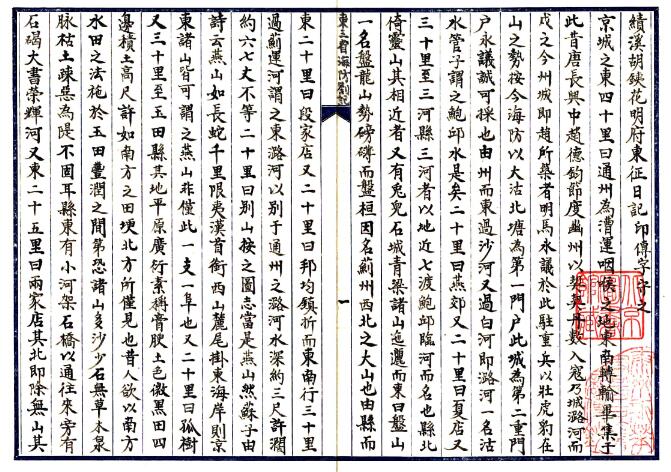 績溪胡銕花明府東征日記 印傳字守之
京城之東四十里曰通州為漕運咽喉之地東南轉輸畢集于
此昔唐長興中趙德鈞節度幽州以契丹數入寇乃城潞河而
戍之今州城即趙所築者明馬永議於此駐重兵以壯虎豹在
山之勢按今海防以大沽北塘為第一門户此城為第二重門
户永議誠可採也由州而東過沙河又過白河即潞河一名沽
水管子謂之鮑邱水是矣二十里曰燕郊又二十里曰夏店又
三十里至三河縣三河者以地近七渡鮑邱臨河而名也縣北
倚靈山其相近者又有兎兒石城青梁諸山迤邐而東曰盤山
一名盤龍山勢磅礴而盤桓因名薊州西北之大山也由縣而
東三省海防劄記
一
東二十里曰段家店又二十里曰邦均鎮折而東南行三十里
過薊運河謂之東潞河以别于通州之潞河水深約三尺許濶
約六七丈不等二十里曰别山按之圖志當是燕山然蘇子由
詩云燕山如長蛇千里限夷漢首銜西山麓尾掛東海岸則京
東諸山皆可謂之燕山非僅此一支一阜也又二十里曰孤樹
又三十里至玉田縣其地平原廣衍素稱膏腴土色微黑田四
邊積土高尺許如南方之田埂北方所僅見也昔人欲以南方
水田之法施於玉田豐潤之間第恐諸山多沙少石無草本泉
脉枯土疎惡為隄不固耳縣東有小河架石橋以通往來旁有
石碣大書榮輝河又東二十五里曰兩家店其北即除無山其